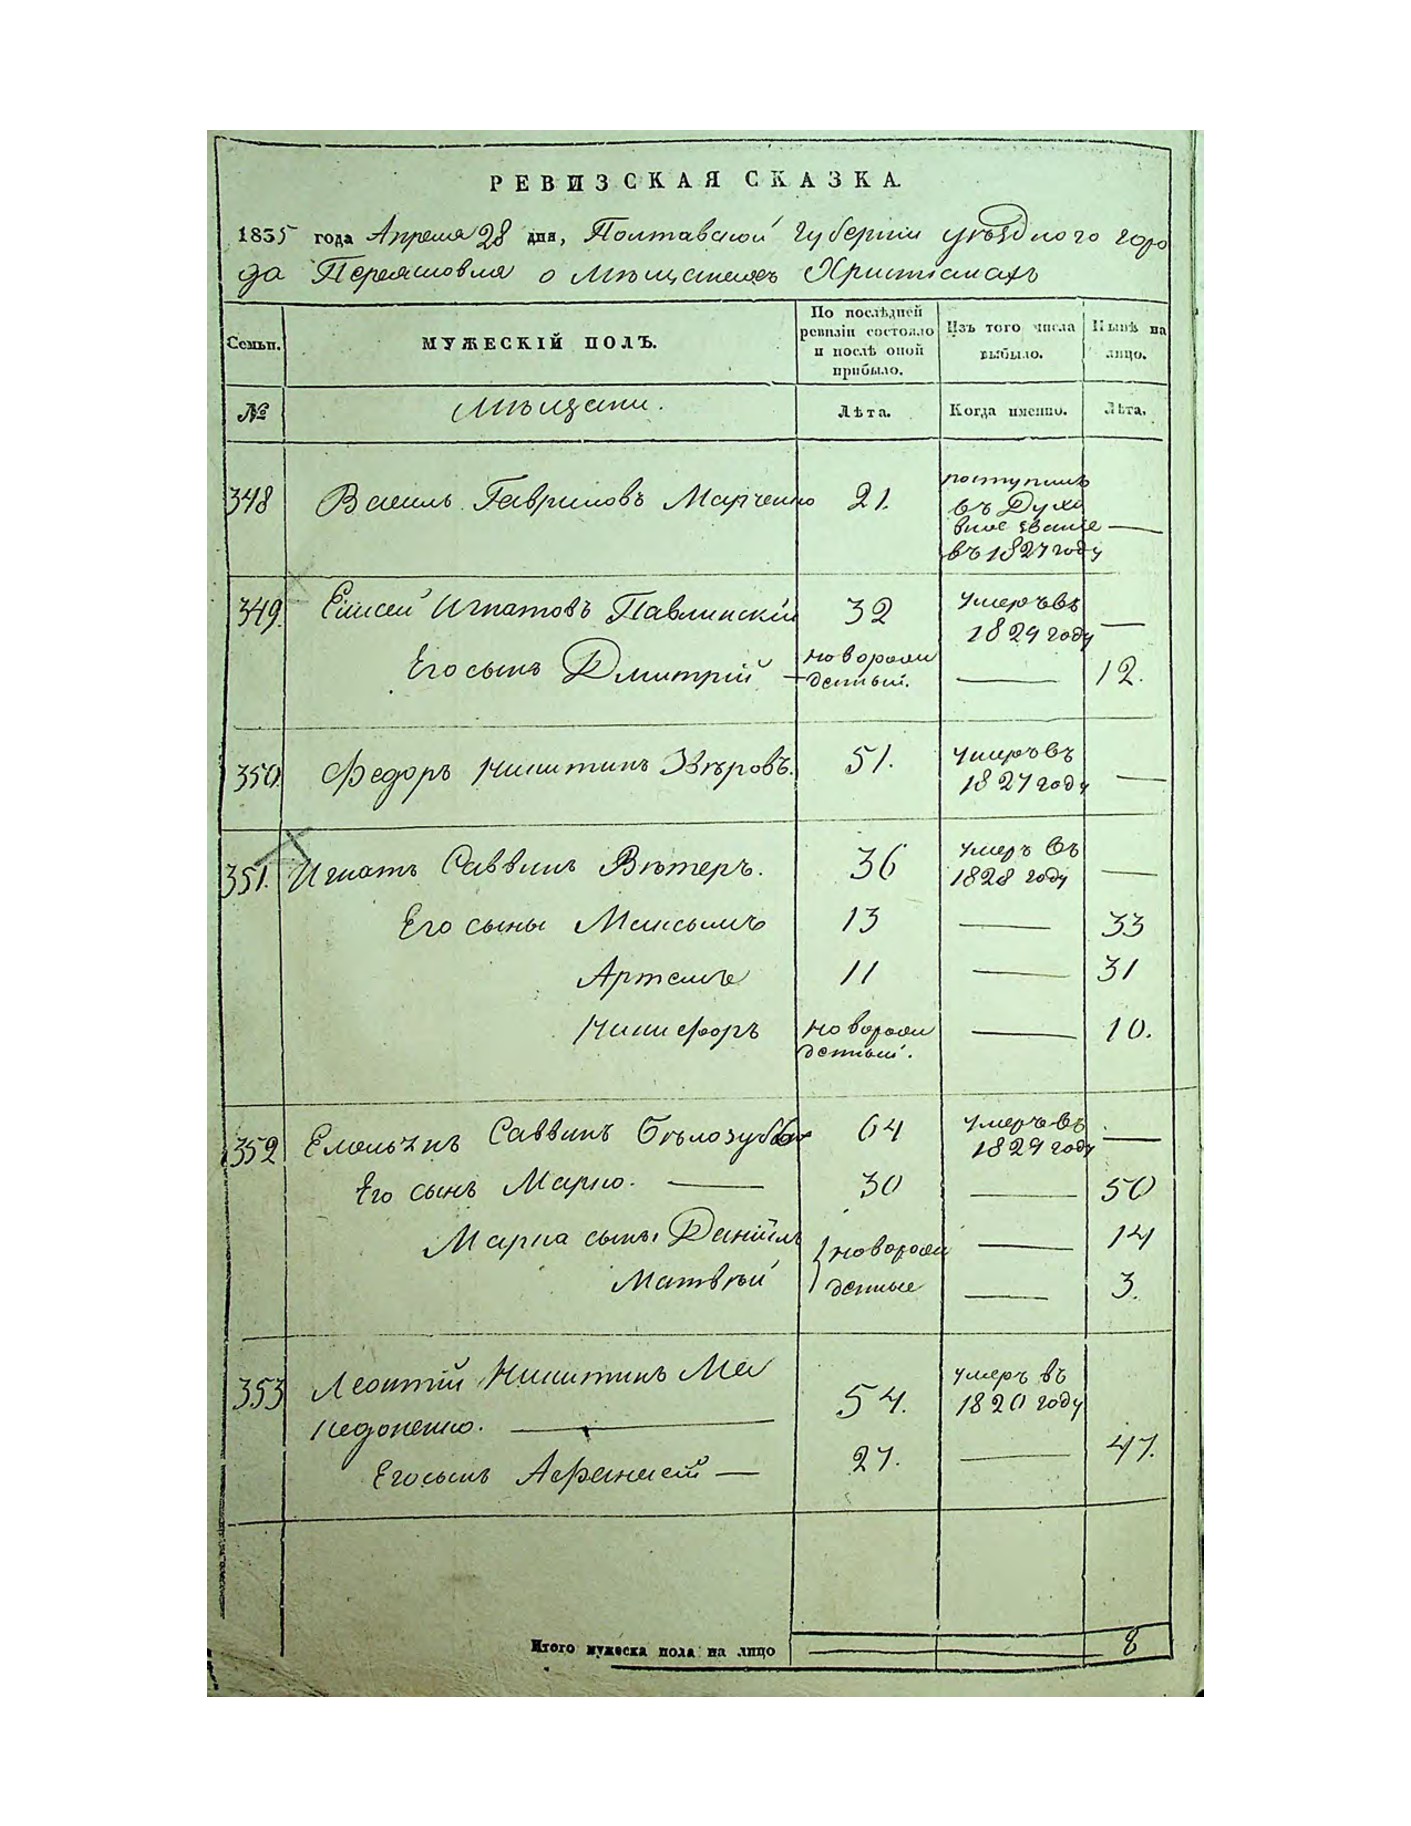 РЕВИЗСКАЯ СКАЗКА.
1835 года Апреля 28 дня, Полтавской Губернии уѣзднаго горо
да Переяславля о Мѣщанехъ Христіанахъ
Семьи.
МУЖЕСКІЙ ПОЛЪ.
По послѣдней
ревизіи состояло
и послѣ оной
прибыло.
Изъ того числа
выбыло.
Нынѣ на
лицо.
№
Мѣщани.
Лѣта.
Когда именно.
Лѣта.
348 Василь Гавриловъ Марченко 21. поступилъ
въ Духо
вное званіе —
въ 1827 году
349. Елисей Игнатовъ Павлинскій 32 умеръ въ
1829 году —
Его сынъ Дмитрій — новорож
денный. — 12.
350. Федоръ Никитинъ Звѣровъ. 51. умеръ въ
1827 году —
351. Игнатъ Саввинъ Вѣтеръ. 36 умеръ въ
1828 году —
Его сыны Максымъ 13 — 33
Артемъ 11 — 31
Никифоръ новорож
денный. — 10.
352 Емельянъ Саввинъ Бѣлозубъ 64 умеръ въ
1829 году —
Его сынъ Марко. — 30 — 50
Марка сыны Даніилъ новорож — 14
Матвѣй денные — 3.
353 Леонтій Никитинъ Ме 54. умеръ въ
1820 году
недоненко. —
Его сынъ Афанасій — 27. — 47.
Итого мужеска пола на лицо — 8